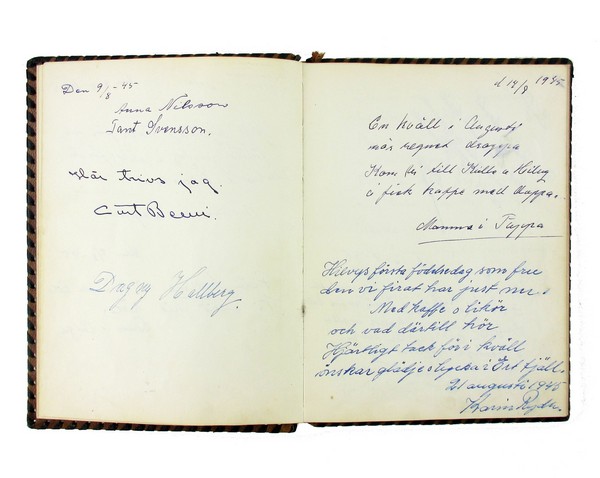 Den 9/8 -45
Anna Nilsson
Tant Svensson.
Här trivs jag.
Curt
Dagny Hallberg.
d 14/8 1945
En kväll i Augusti
när regnet droppa
Kom vi till Kulla o
å fick kappa med doppa.
Mamma i Pappa
första födelsedag som fru
den vi firat har just nu.
Med kaffe o likör
och vad därtill hör
Hjärtligt tack för i kväll
önskar glädje o lycka i Ert tjäll.
21 augusti 1945
Karin